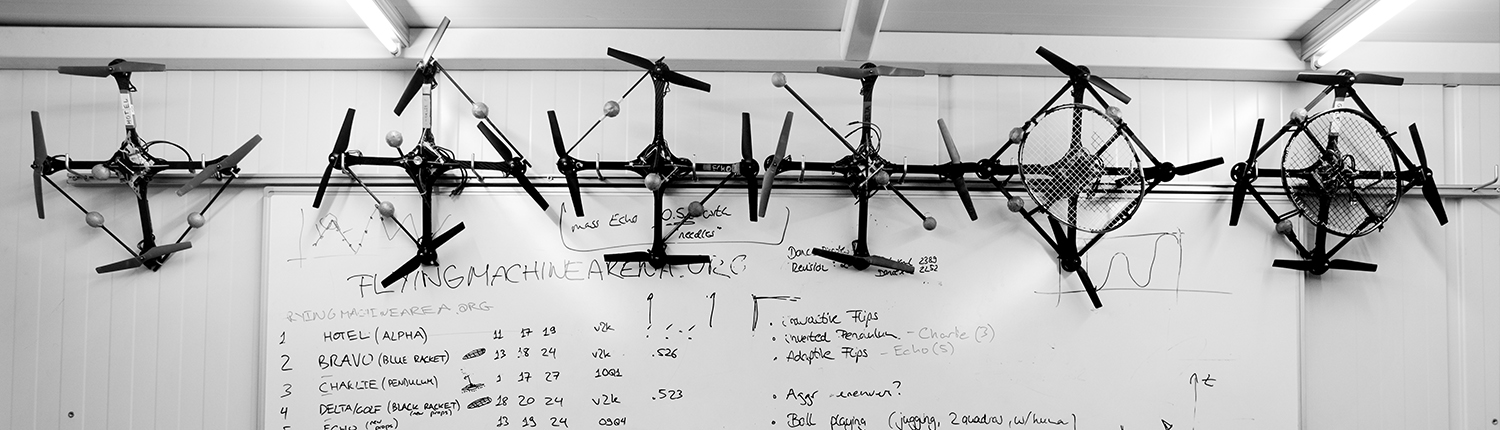 HOTEL
ECHO
mass Echo 0.5
needles"
FLYINGMACHINEARENA.ORG
2389
Revision 2252
FLYINGMACHINEAREA.ORG
1 HOTEL (ALPHA) 11 17 19 v2k
2 BRAVO (BLUE RACKET) 13 18 24 v2k .526
3 CHARLIE (PENDULUM) 1 17 27 10Q1
4 DELTA/GOLF (BLACK RACKET) 18 20 24 v2k .523
(new props)
5 ECHO (new props) 13 19 24 09Q4
• Flips
• inverted Pendulum - Charlie (3)
• Adaptive Flips - Echo (5)
• Aggr ?
• Ball playing (jugging, 2 quadros, w/human)
t